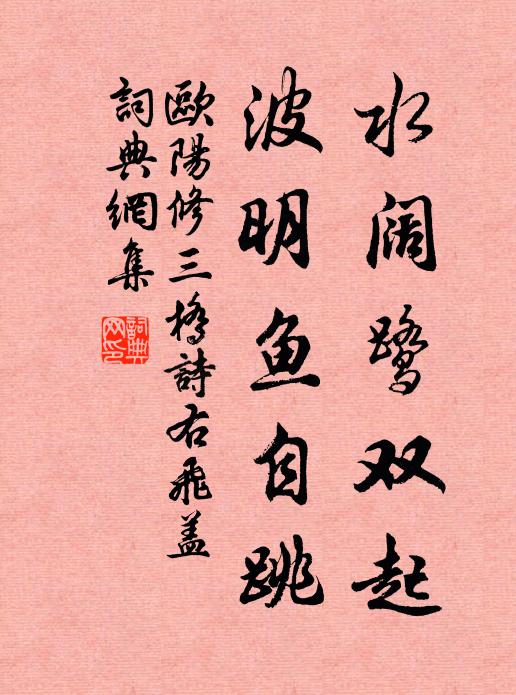 水阔鹭双起
波明鱼自跳
歐陽修三橋詩右飛盖
詞典網集
詞典
网印